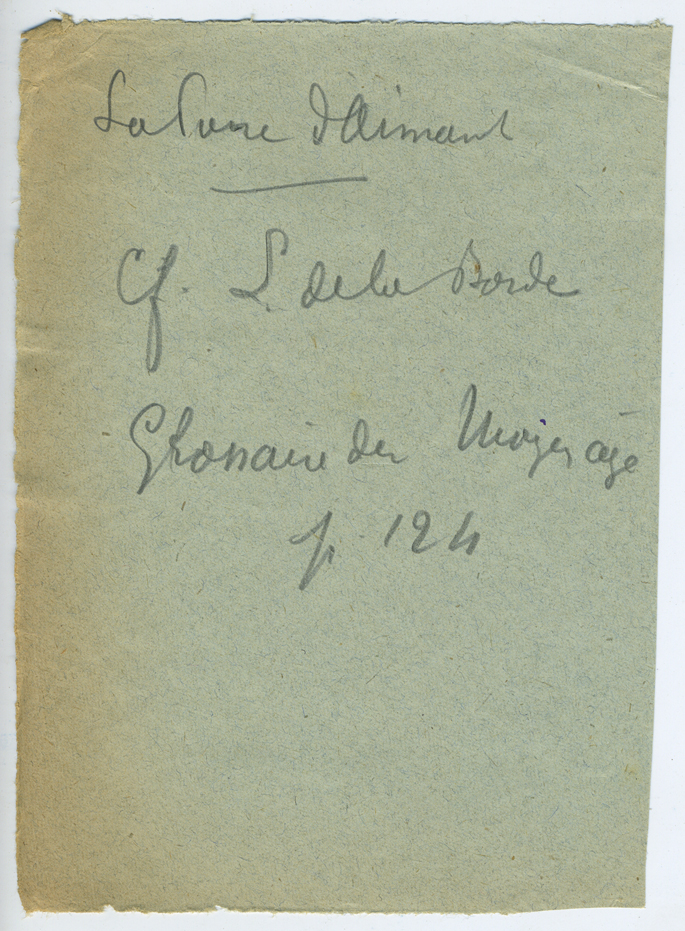 La Pierre d'Aimant
Cf. L. de la Borde
Glossaire du Moyen âge
p. 124